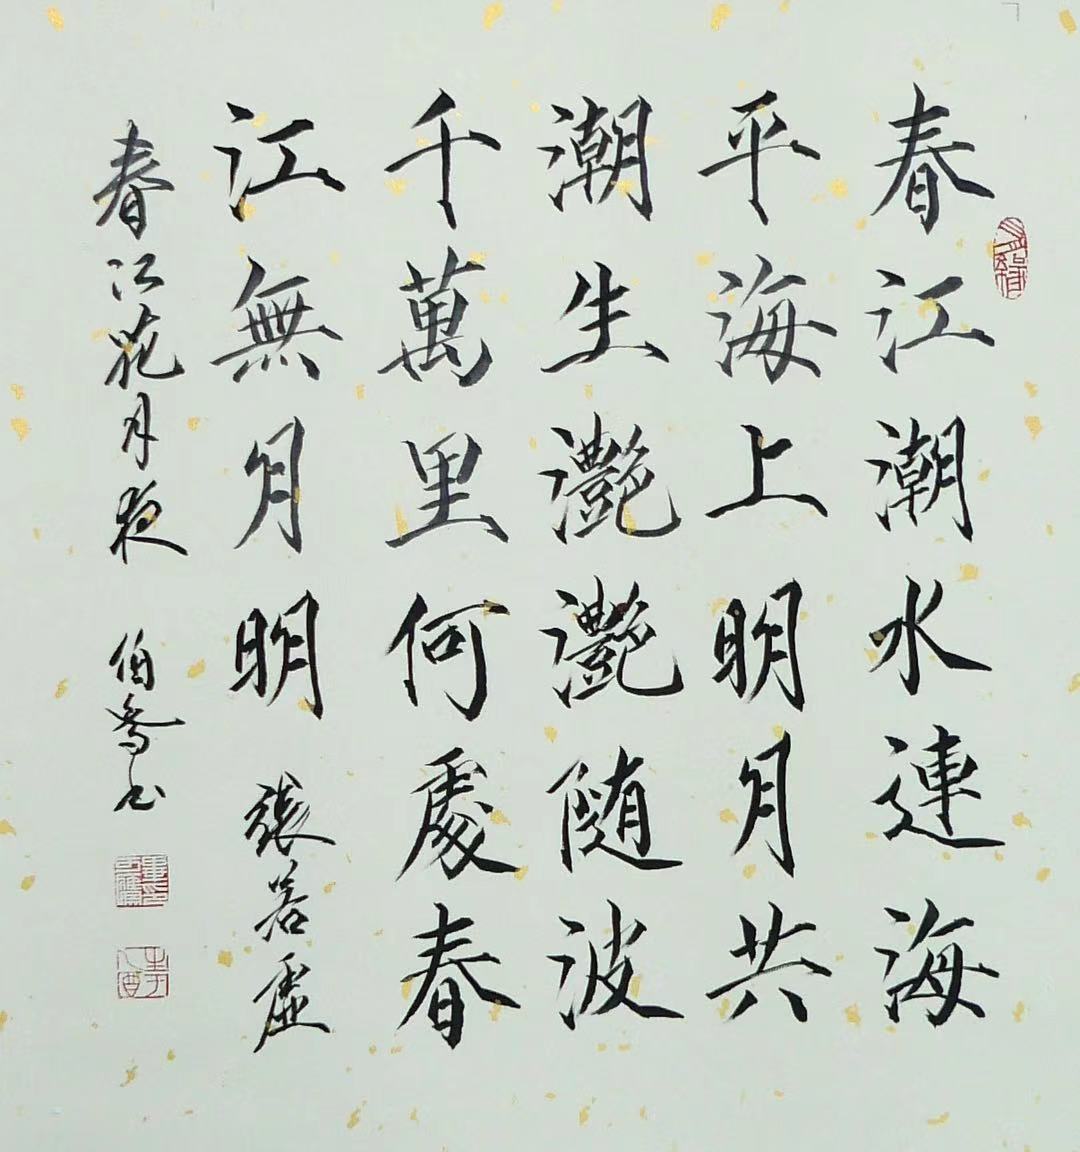 春江潮水連海
平海上明月共
潮生灔灔随波
千萬里何處春
江無月明 張若虛
春江花月夜 伯喬书